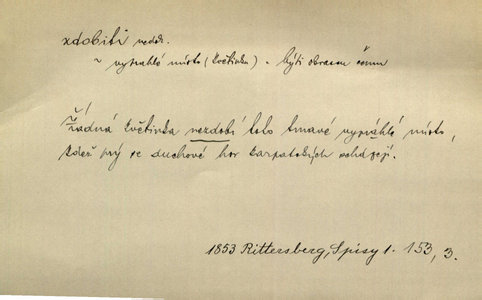 zdobiti nedok.
~ vyprahlé místo (květinka) - býti obrazem čemu
Řádná květinka nezdobí toto tmavé vypráhlé místo,
kdež prý se duchové hor karpatských scházejí.
1853 Rittersberg, Spisy 1. 153, 3.